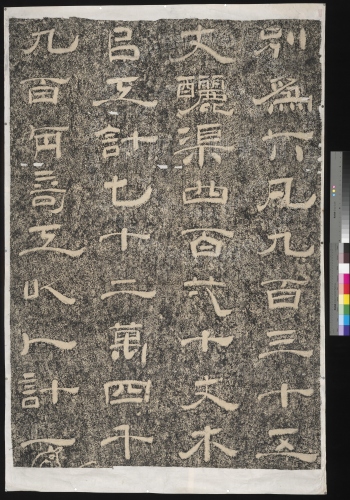 別為六凡九百三十五
丈釃渠四百六十丈木
㠯工計七十二萬四千
九百有奇土以人計